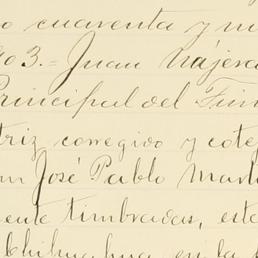 o cuarenta y nu
903.- Juan Nájera
Principal del Tim
triz corregido y cote
José Pablo Mart
mente timbradas, este
Chihuahua en la